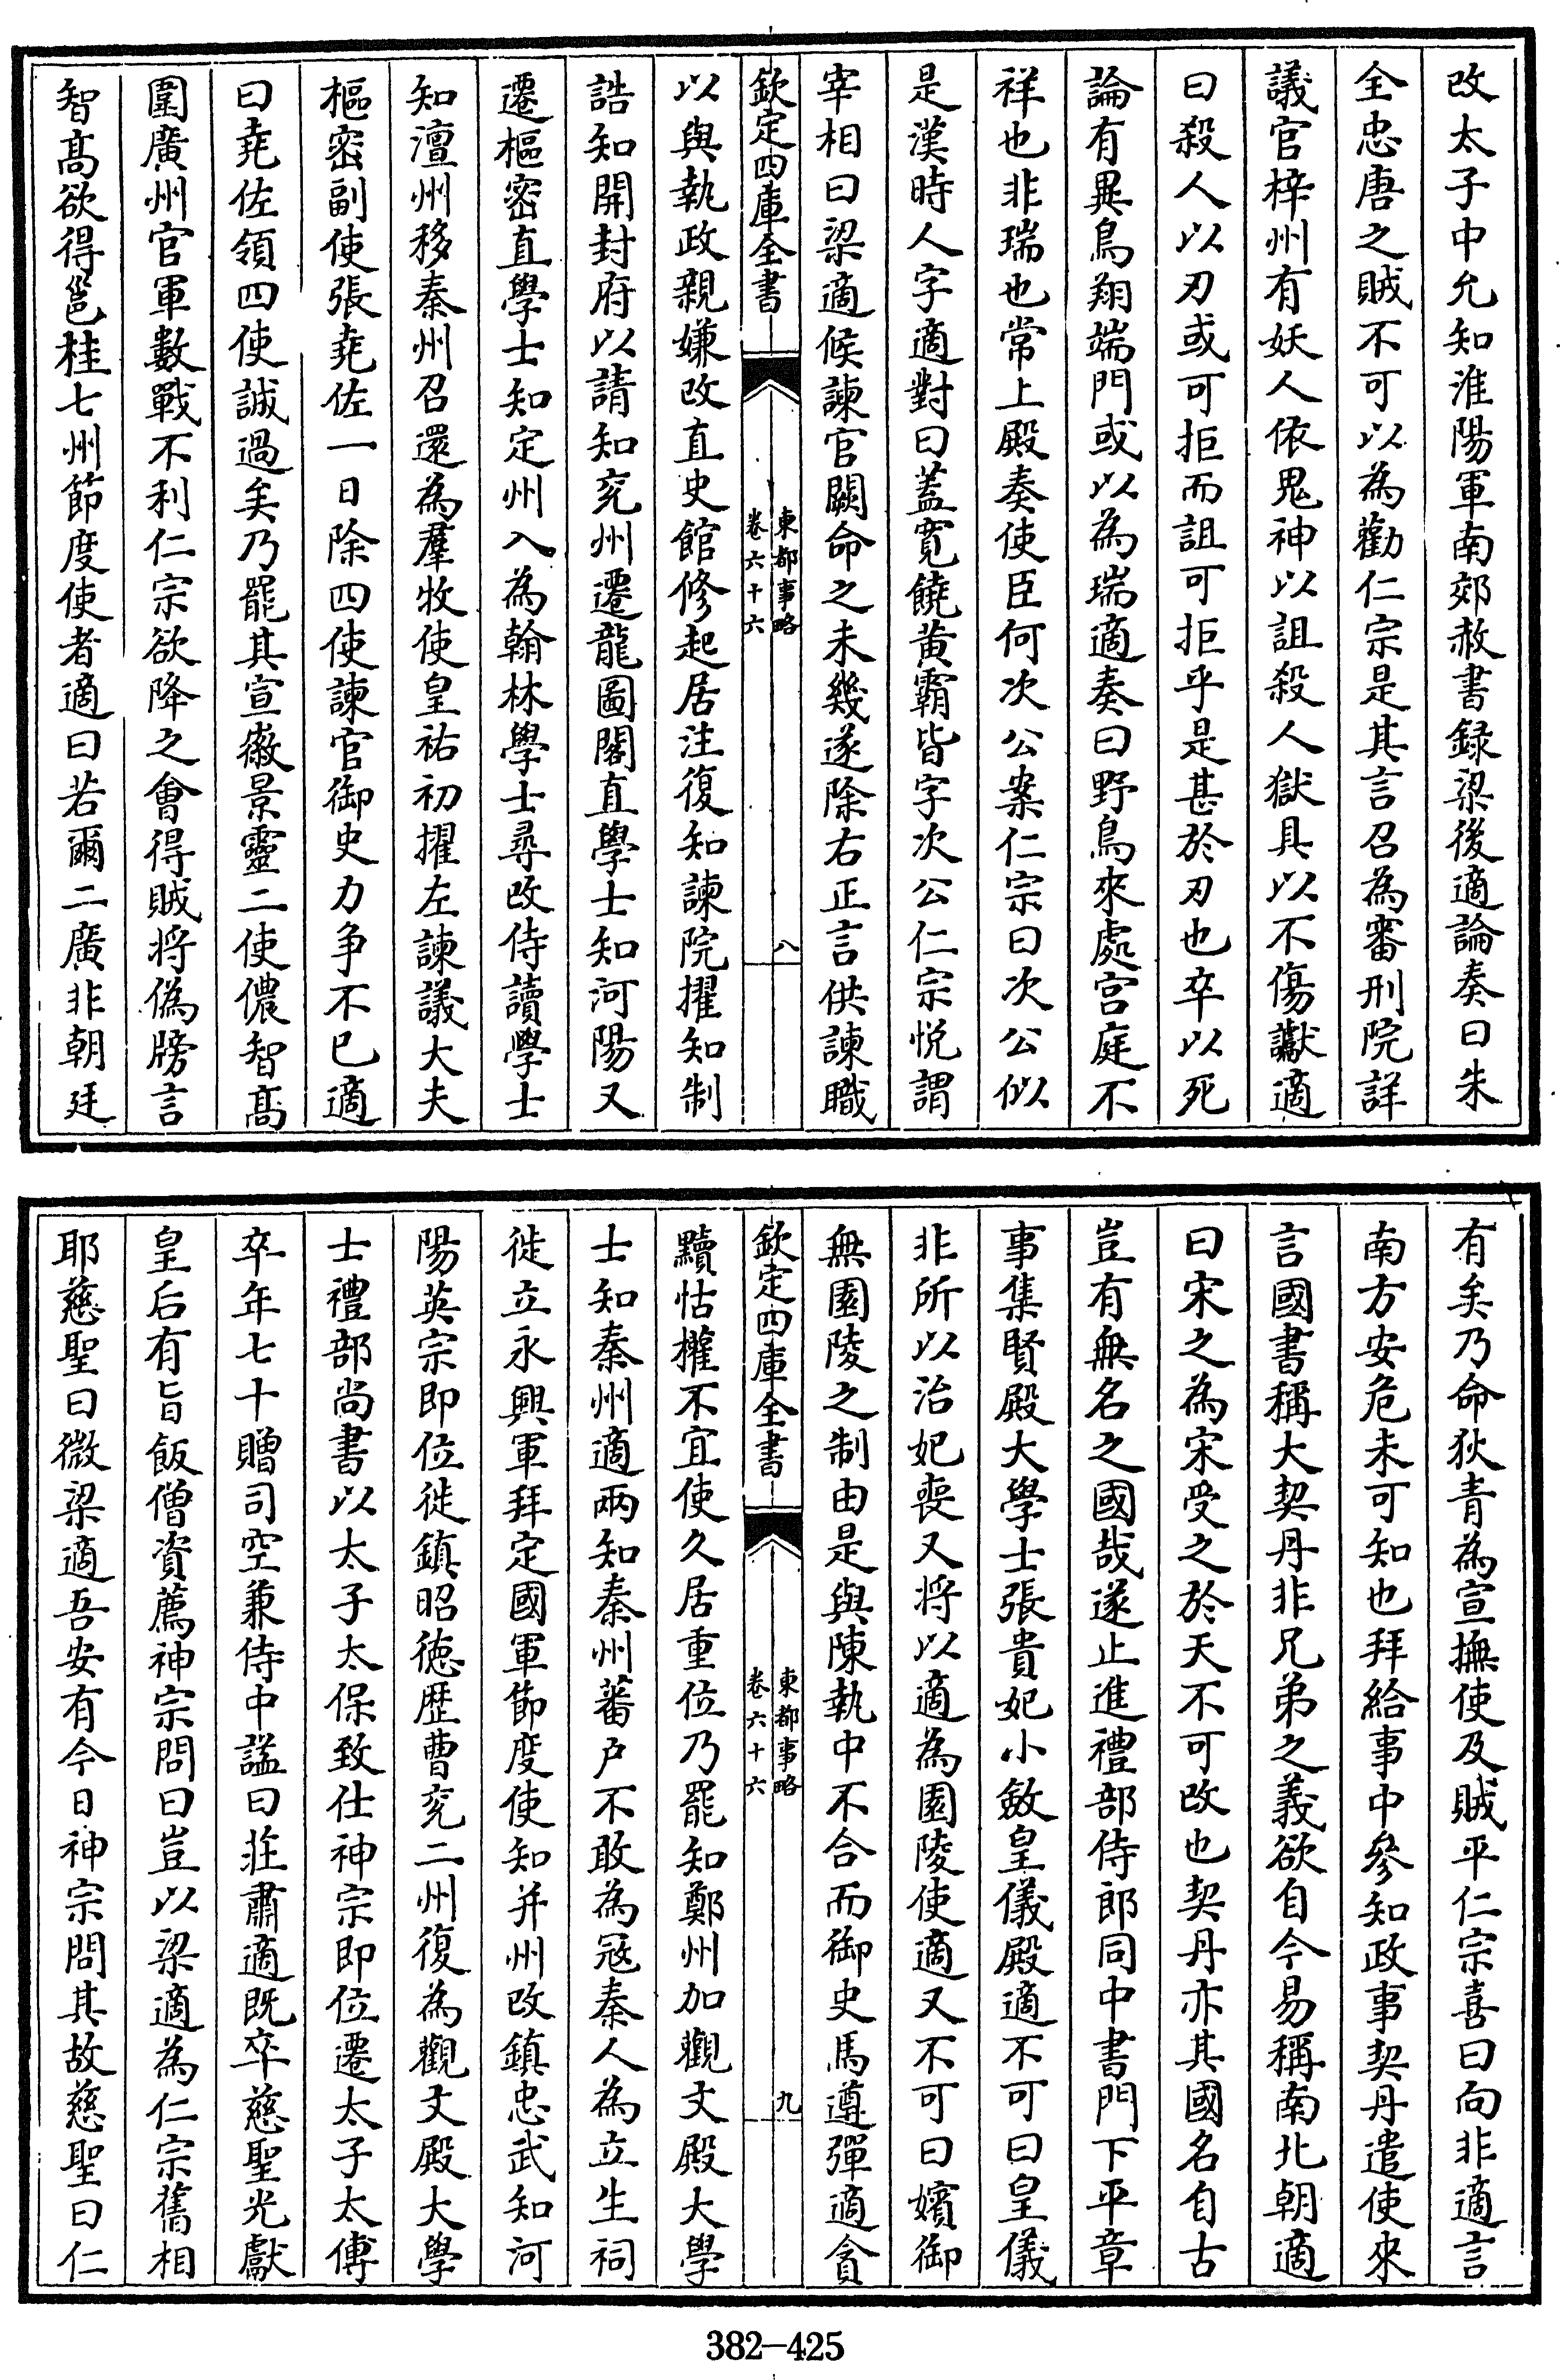 改太子中允知淮陽軍南郊赦書録梁後適論奏曰朱
全忠唐之賊不可以為勸仁宗是其言召為審刑院詳
議官梓州有妖人依鬼神以詛殺人獄具以不傷讞適
曰殺人以刃或可拒而詛可拒乎是甚於刃也卒以死
論有異鳥翔端門或以為瑞適奏曰野鳥來處宫庭不
祥也非瑞也常上殿奏使臣何次公案仁宗曰次公似
是漢時人字適對曰蓋寛饒黄霸皆字次公仁宗悦謂
宰相曰梁適候諫官闕命之未幾遂除右正言供諫職
欽定四庫全書
東都事略
卷六十六
八
以與執政親嫌改直史館修起居注復知諫院擢知制
誥知開封府以請知兖州遷龍圖閣直學士知河陽又
遷樞密直學士知定州入為翰林學士尋改侍讀學士
知澶州移秦州召還為羣牧使皇祐初擢左諫議大夫
樞密副使張堯佐一日除四使諫官御史力争不已適
曰堯佐領四使誠過矣乃罷其宣徽景靈二使儂智髙
圍廣州官軍數戰不利仁宗欲降之會得賊將偽牓言
智髙欲得邕桂七州節度使者適曰若爾二廣非朝廷
有矣乃命狄青為宣撫使及賊平仁宗喜曰向非適言
南方安危未可知也拜給事中參知政事契丹遣使來
言國書稱大契丹非兄弟之義欲自今易稱南北朝適
曰宋之為宋受之於天不可改也契丹亦其國名自古
豈有無名之國哉遂止進禮部侍郎同中書門下平章
事集賢殿大學士張貴妃小斂皇儀殿適不可曰皇儀
非所以治妃喪又將以適為園陵使適又不可曰嬪御
無園陵之制由是與陳執中不合而御史馬遵彈適貪
欽定四庫全書
東都事略
卷六十六
九
黷怙權不宜使久居重位乃罷知鄭州加觀文殿大學
士知秦州適兩知秦州蕃户不敢為冦秦人為立生祠
徙立永興軍拜定國軍節度使知并州改鎮忠武知河
陽英宗即位徙鎮昭徳歴曹兖二州復為觀文殿大學
士禮部尚書以太子太保致仕神宗即位遷太子太傅
卒年七十贈司空兼侍中諡曰莊肅適既卒慈聖光獻
皇后有旨飯僧資薦神宗問曰豈以梁適為仁宗舊相
耶慈聖曰微梁適吾安有今日神宗問其故慈聖曰仁
382—425